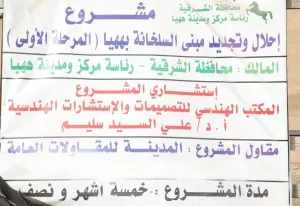 محافظة الشرقية
رئاسة مركز ومدينة ههيا
مشروع
إحلال وتجديد مبنى السلخانة بههيا ( المرحلة الأولى )
المالك : محافظة الشرقية - رئاسة مركز ومدينة ههيا
إستشارى المشروع
المكتب الهندسي للتصميمات والإستشارات الهندسية
أ . د / على السيد سليم
مقاول المشروع : المدينة للمقاولات العامة
مدة المشروع : خمسة اشهر و نصف